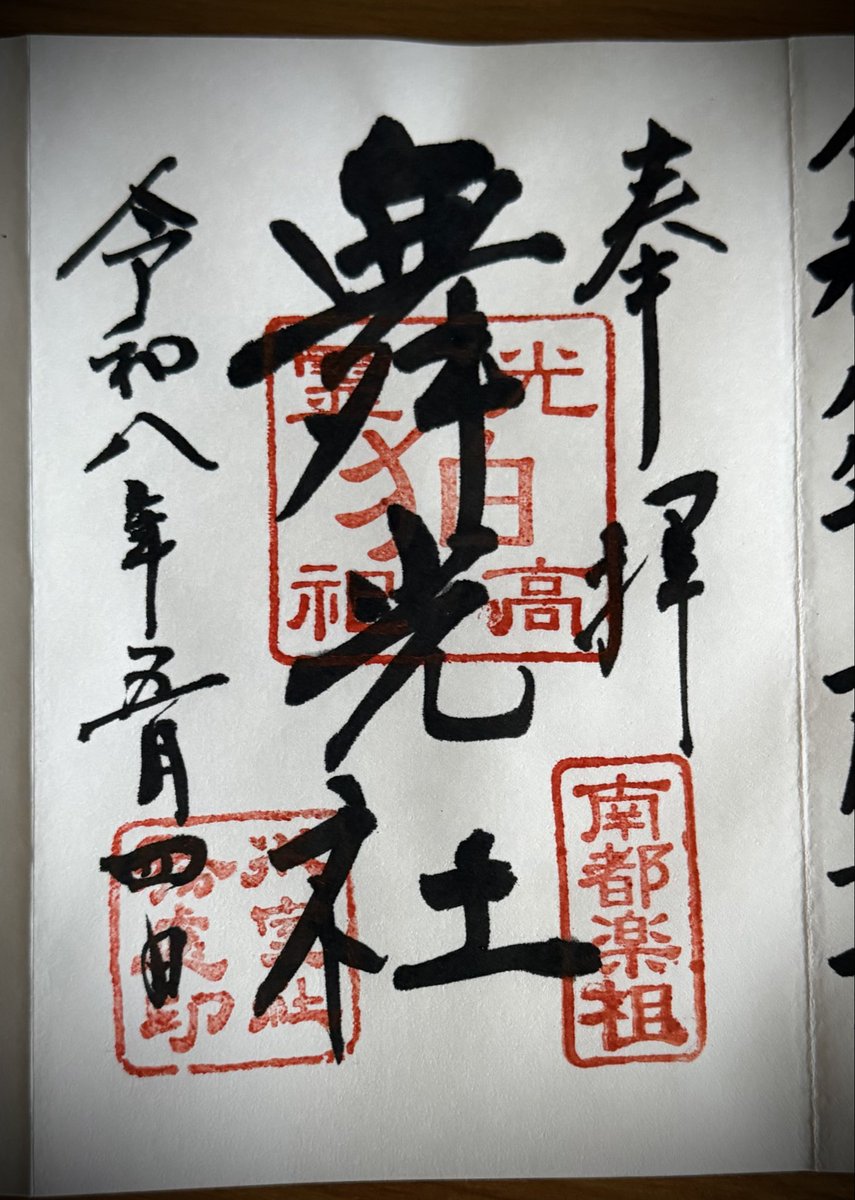 奉拝
南都楽祖
舞光社
狛光高
霊祖
令和八年五月四日
氷室社